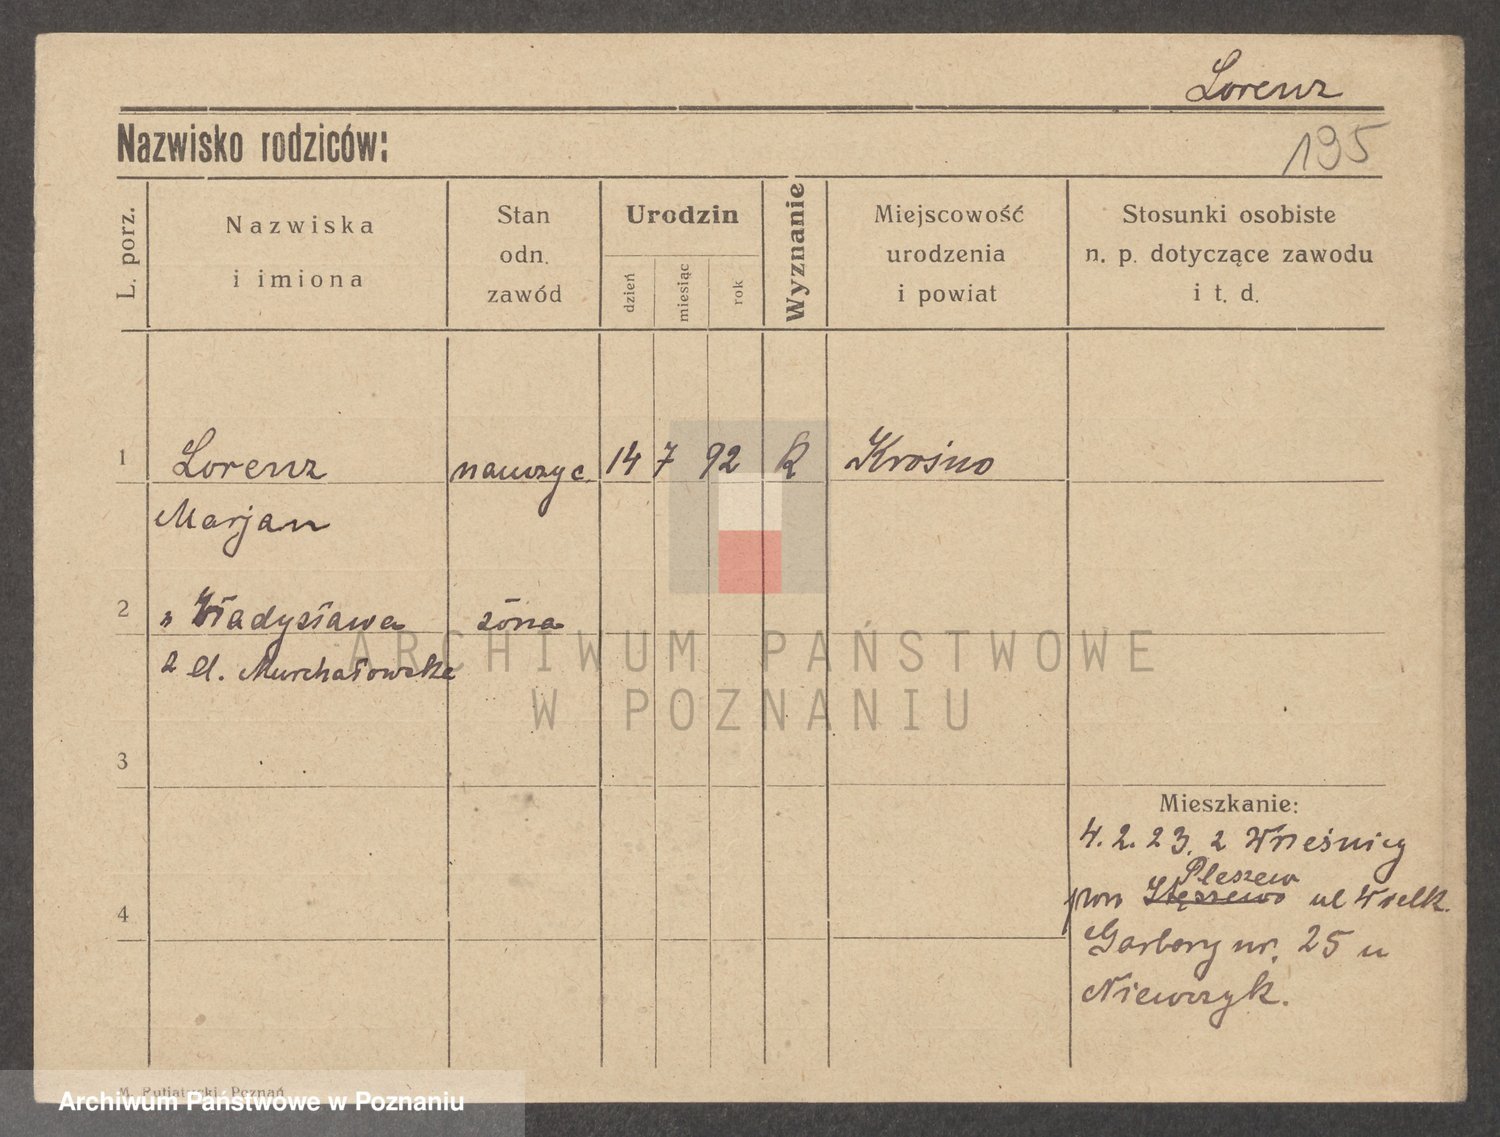 Lorenz
195
Nazwisko rodziców:
L. porz.
Nazwiska
i imiona
Stan
odn.
zawód
Urodzin
dzień
miesiąc
rok
Wyznanie
Miejscowość
urodzenia
i powiat
Stosunki osobiste
n. p. dotyczące zawodu
i t. d.
1 Lorenz nauczyc. 14 7 92 k Krośno
Marjan
2 " Władysława żona
z d. Murchałowske
ARCHIWUM PAŃSTWOWE
W POZNANIU
3
Mieszkanie:
4. 2. 23. z Wrześnicy
Pleszew
pow ul Wielk.
4
Garbary nr. 25 u
Niewczyk.
M. Putiatycki Poznań
Archiwum Państwowe w Poznaniu